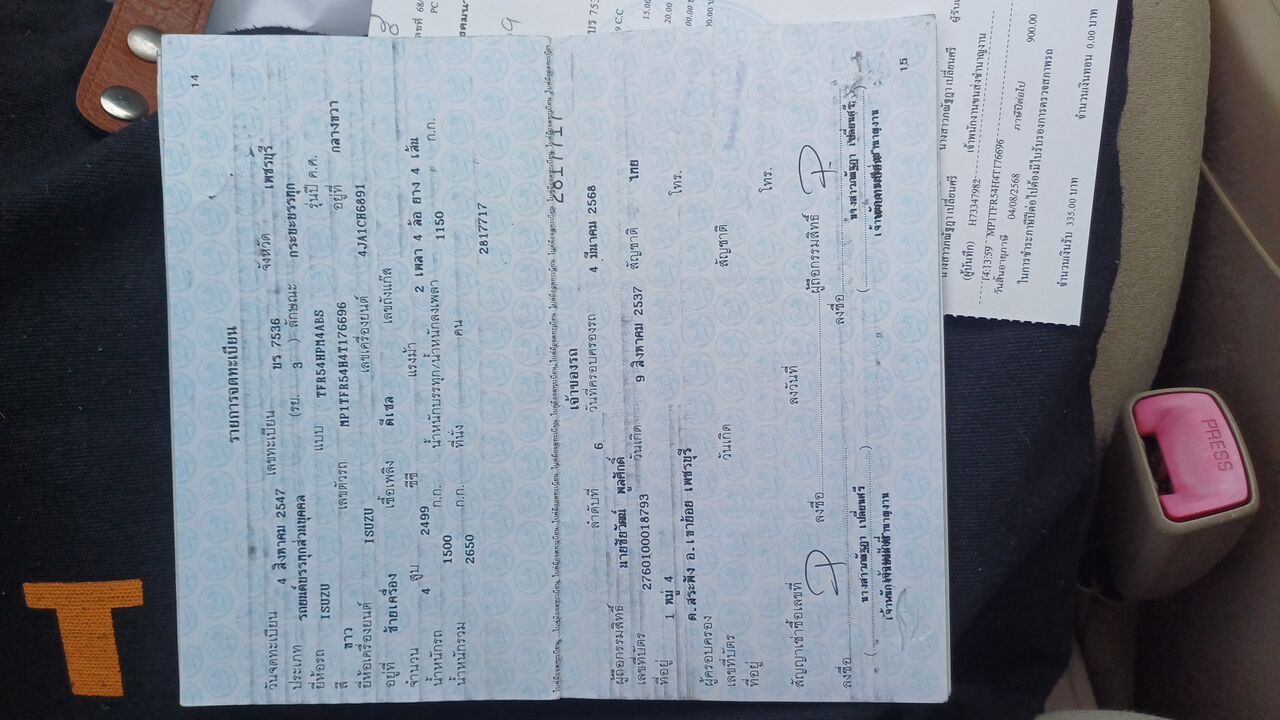 14
รายการจดทะเบียน
วันจดทะเบียน 4 สิงหาคม 2547 เลขทะเบียน บร 7536 จังหวัด เพชรบุรี
ประเภท รถยนต์บรรทุกส่วนบุคคล (รย. 3 ) ลักษณะ กระบะบรรทุก
ยี่ห้อรถ ISUZU แบบ TFR54HPM4ABS รุ่นปี ค.ศ.
สี ขาว เลขตัวรถ MP1TFR54H4T176696 อยู่ที่ กลางขวา
ยี่ห้อเครื่องยนต์ ISUZU เลขเครื่องยนต์ 4JA1CH6891
อยู่ที่ ซ้ายเครื่อง เชื้อเพลิง ดีเซล เลขถังแก๊ส
จำนวน 4 สูบ 2499 ซีซี แรงม้า 2 เพลา 4 ล้อ ยาง 4 เส้น
น้ำหนักรถ 1500 ก.ก. น้ำหนักบรรทุก/น้ำหนักลงเพลา 1150 ก.ก.
น้ำหนักรวม 2650 ก.ก. ที่นั่ง คน
2817717
2817717
เจ้าของรถ
ลำดับที่ 6 วันที่ครอบครองรถ 4 มีนาคม 2568
ผู้ถือกรรมสิทธิ์ นายชัยวัฒน์ พูลศักดิ์
เลขที่บัตร 2760100018793 วันเกิด 9 สิงหาคม 2537 สัญชาติ ไทย
ที่อยู่ 1 หมู่ 4 โทร.
ต.สระพัง อ.เขาย้อย เพชรบุรี
ผู้ครอบครอง
เลขที่บัตร วันเกิด สัญชาติ
ที่อยู่ โทร.
สัญญาเช่าซื้อเลขที่ ลงวันที่ ผู้ถือกรรมสิทธิ์
ลงชื่อ ลงชื่อ ลงชื่อ
15
(ผู้บันทึก) H73347982 เจ้าพนักงานขนส่งชำนาญงาน
14:13:59 MP1TFR54H4T176696
วันสิ้นอายุภาษี 04/08/2568 ภาษีปีต่อไป 900.00
ในการชำระภาษีปีต่อไปต้องมีใบรับรองการตรวจสภาพรถ
จำนวนเงินรับ 335.00 บาท จำนวนเงินทอน 0.00 บาท
PRESS